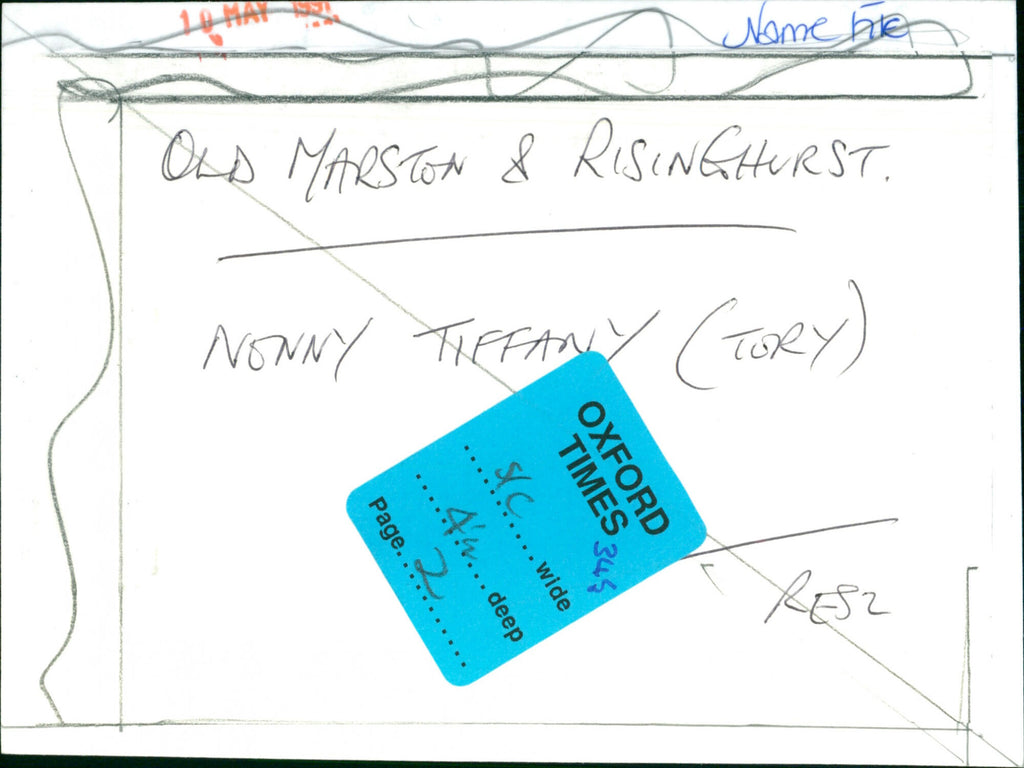 10 MAY 1991
Name File
OLD MARSTON & RISINGHURST.
NONNY TIFFANY (TORY)
OXFORD
TIMES
345
S/C wide
deep
Page 2